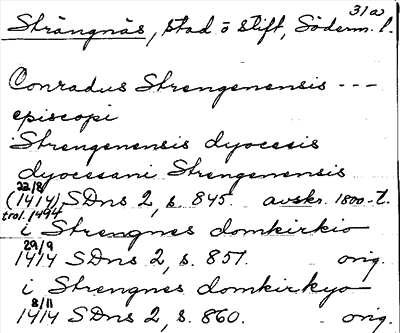 31a
Strängnäs, stad o stift, Söderm. l.
Conradus Strengenensis ---
episcopi
Strengenensis dyocesis
dyocesani Strengenensis
22/8
(1414) SDns 2, s. 845. avskr. 1800-t.
trol. 1494
i Strengnes domkirkio
29/9
1414 SDns 2, s. 851. orig.
i Strengnes domkirkyo
8/11
1414 SDns 2, s. 860. orig.